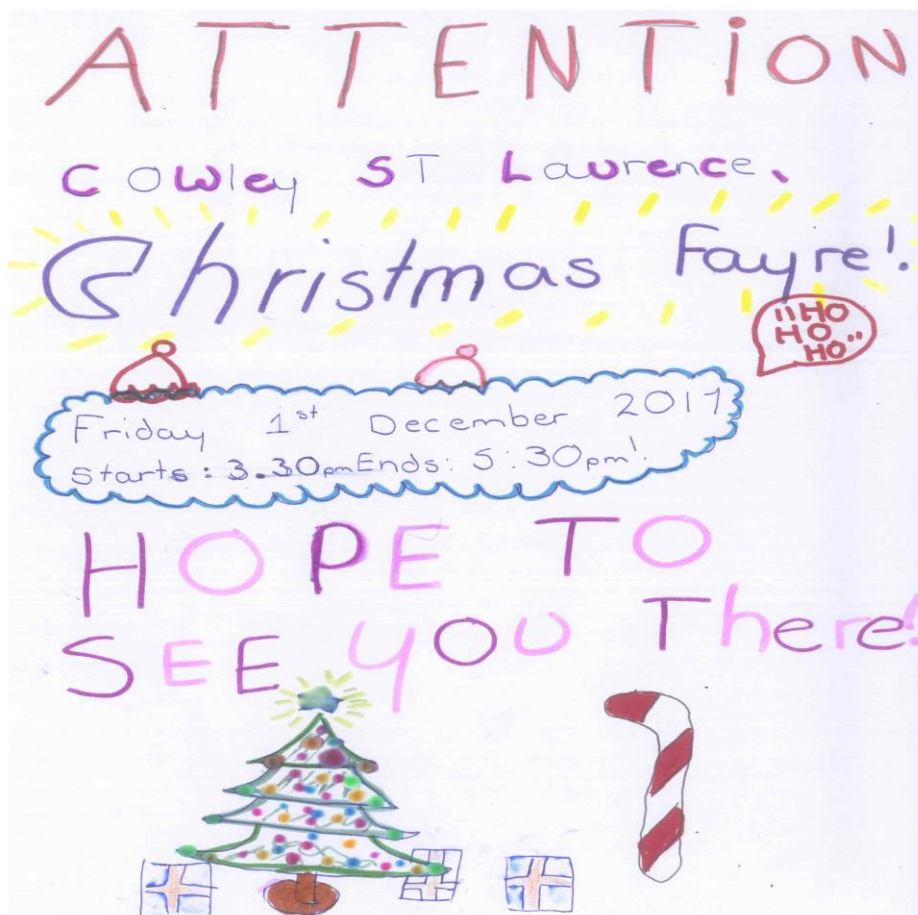 ATTENTiON
COWley ST Lawrence,
Christmas Fayre!
"HO
HO
HO"
Friday 1st December 2017
Starts: 3.30pm Ends: 5:30pm!
HOPE TO
SEE YOU There!